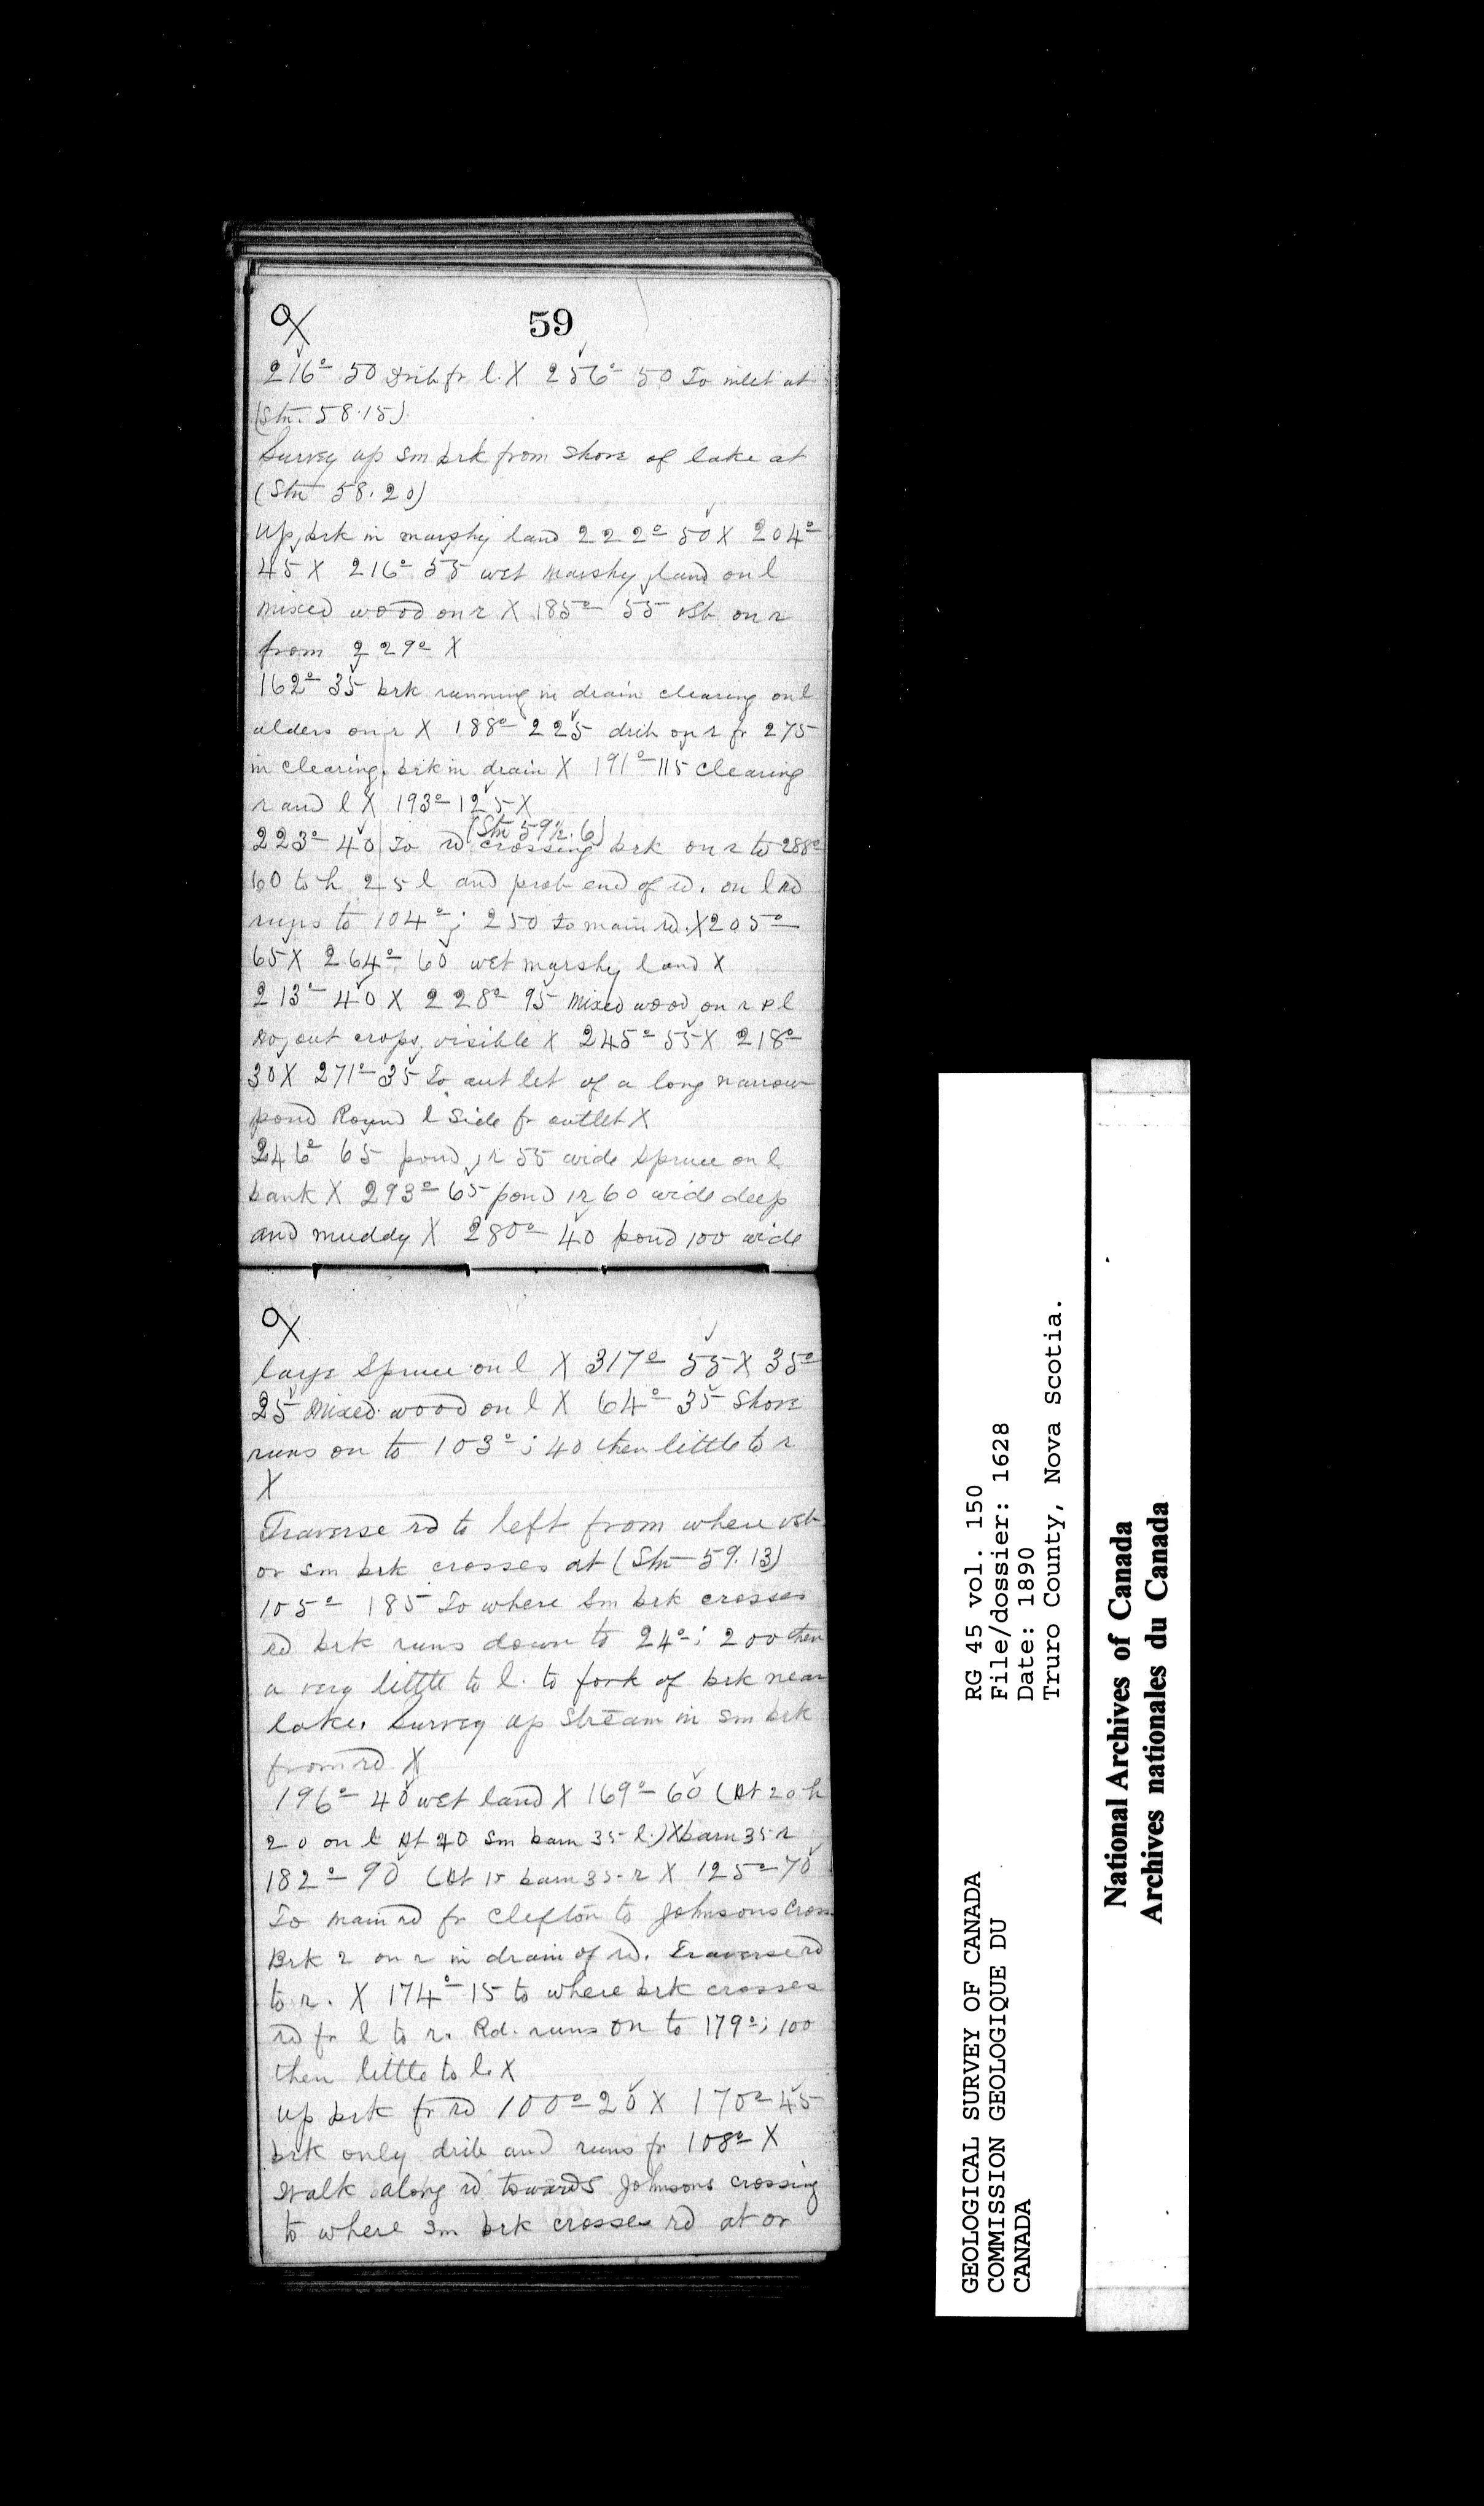 59
216° 50 Drib fr l. X 256° 50 To inlet at
(Stn. 58.15)
Survey up sm brk from shore of lake at
(Stn 58.20)
Up brk in marshy land 222° 50 X 204°
45 X 216° 55 wet marshy land on l
mixed wood on r X 185° 55 vsb on r
from 229° X
162° 35 brk running in drain clearing on l
alders on r X 188° 225 drib on r fr 275
in clearing. brk in drain X 191° 115 clearing
r and l X 193° 125 X
(Stn 59½.6)
223° 40 To rd crossing brk on r to 288°
60 to h 25 l and prob end of rd. on l rd
runs to 104°; 250 to main rd. X 205°
65 X 264° 60 wet marshy land X
213° 40 X 228° 95 mixed wood on r & l
no out crops visible X 245° 55 X 218°
30 X 271° 35 To out let of a long narrow
pond Round l Side fr outlet X
246° 65 pond, r 55 wide Spruce on l
bank X 293° 65 pond r 60 wide deep
and muddy X 280° 40 pond 100 wide
large Spruce on l X 317° 55 X 35°
25 Mixed wood on l X 64° 35 Shore
runs on to 103°; 40 then little to r
X
Traverse rd to left from where vsb
or sm brk crosses at (Stn 59.13)
105° 185 To where Sm brk crosses
rd brk runs down to 24°; 200 then
a very little to l. to fork of brk near
lake. Survey up Stream in sm brk
from rd X
196° 40 wet land X 169° 60 (At 20 h
20 on l At 40 sm barn 35 l.) X barn 35 r
182° 90 (At 15 barn 35 r X 125° 70
To main rd fr Clifton to Johnsons Cross
Brk r on r in drain of rd. Traverse rd
to r. X 174° 15 to where brk crosses
rd fr l to r. Rd. runs on to 179°; 100
then little to l. X
up brk fr rd 100° 20 X 170° 45
brk only drib and runs fr 108° X
Walk along rd towards Johnsons crossing
to where sm brk crosses rd at or
GEOLOGICAL SURVEY OF CANADA
COMMISSION GEOLOGIQUE DU
CANADA
RG 45 vol. 150
File/dossier: 1628
Date: 1890
Truro County, Nova Scotia.
National Archives of Canada
Archives nationales du Canada